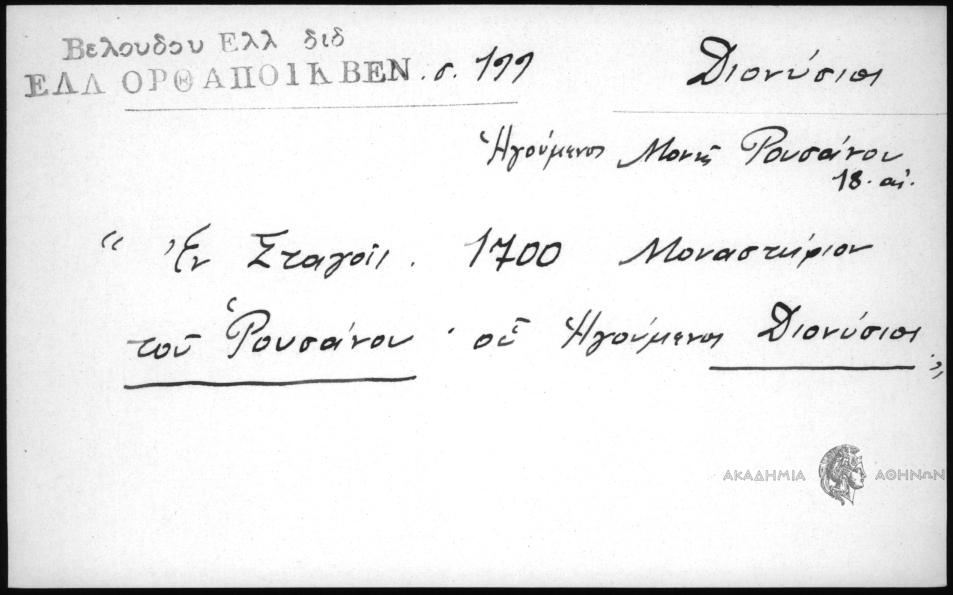 Βελουδου Ελλ διδ
ΕΛΛ ΟΡΘ ΑΠΟΙΚ ΒΕΝ . σ. 199
Διονύσιος
Ἡγούμενος Μονῆς Ρουσάνου
18. αἰ.
“ Ἐν Σταγοῖς . 1700 Μοναστήριον
τοῦ Ῥουσάνου · οὗ Ἡγούμενος Διονύσιος . ”
ΑΚΑΔΗΜΙΑ ΑΘΗΝΩΝ